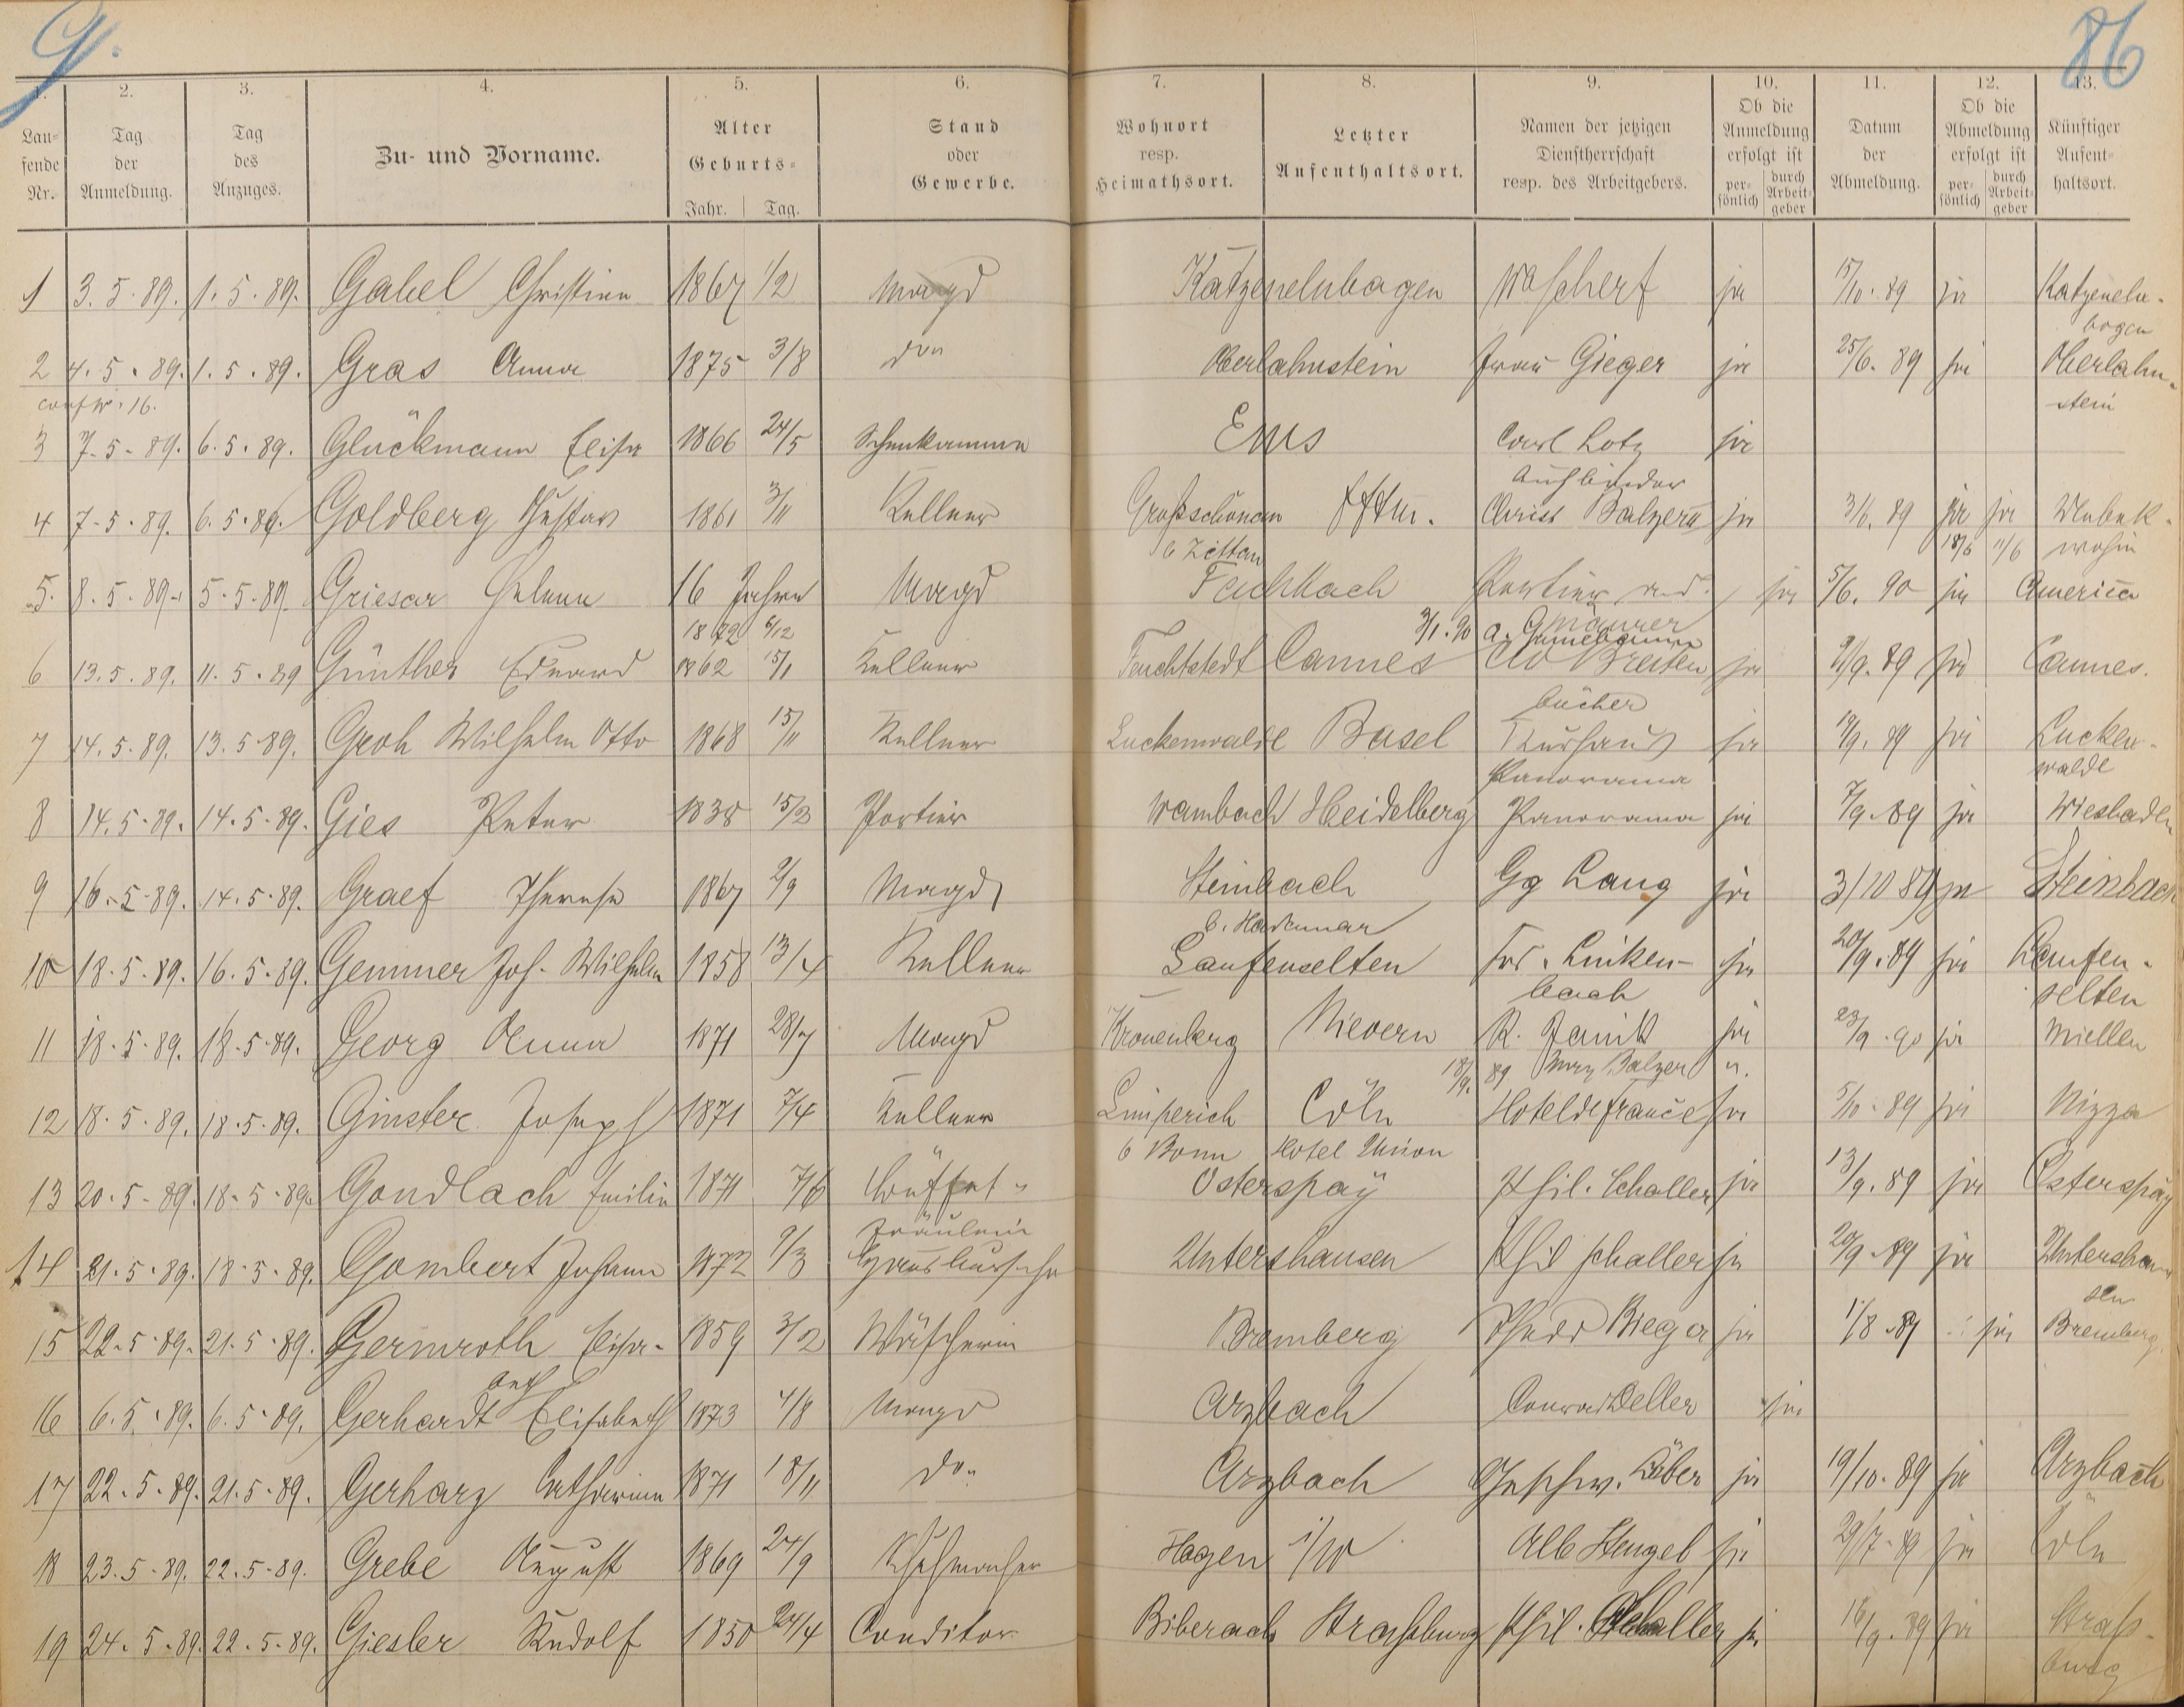 G. 86
1. 2. 3. 4. 5. 6. 7. 8. 9. 10. 11. 12. 13.
Lau=fende Nr. Tag der Anmeldung. Tag des Anzuges. Zu- und Vorname. Alter Geburts= Jahr. Tag. Stand oder Gewerbe. Wohnort resp. Heimathsort. Letzter Aufenthaltsort. Namen der jetzigen Dienstherrschaft resp. des Arbeitgebers. Ob die Anmeldung erfolgt ist per=sönlich durch Arbeit=geber Datum der Abmeldung. Ob die Abmeldung erfolgt ist per=sönlich durch Arbeit=geber Künftiger Aufent=haltsort.
1 3.5.89. 1.5.89. Gabel Christine 1867 1/2 Magd Katzenelnbogen W Scherf ja 15/10.89 ja Katzeneln-
bogen
2 4.5.89. 1.5.89. Gras Anna 1875 3/8 Oberlahnstein Frau Gieger ja 25/6.89 ja Oberlahn-
16. stein
3 7.5.89. 6.5.89. Glückmann Elise 1866 24/5 Schenkamme Ems Carl Lotz ja
4 7.5.89. 6.5.89. Goldberg Gustav 1861 3/11 Kellner Großschönau Christ Balzer ja 3/6.89 ja ja Unbek.
b Zittau 18/6 11/6 wohin
5. 8.5.89. 5.5.89. Griesar Helene 16 Jahre Magd Fachbach ja 5/6.90 ja America
1872 6/12 3/1.90
6 13.5.89. 11.5.89 Günther Eduard 1862 15/1 Kellner Cannes ja 9/9.89 ja Cannes.
7 14.5.89. 13.5.89. Groh Wilhelm Otto 1868 15/11 Kellner Luckenwalde Basel Kurhaus ja 19/9.89 ja Lucken-
Panorama walde
8 14.5.89. 14.5.89. Gies Peter 1838 15/3 Portier Wambach Heidelberg Panorama ja 7/9.89 ja Wiesbaden
9 16.5.89. 14.5.89. Graef Therese 1867 2/9 Magd Steinbach Gg Lang ja 3/10 89 ja Steinbach
b. Hadamar
10 18.5.89. 16.5.89. Gemmer Joh. Wilhelm 1858 13/4 Kellner Laufenselten Frd. Linken- ja 20/9.89 ja Laufen-
bach selten
11 18.5.89. 18.5.89. Georg Anna 1871 28/7 Magd Kronenberg Nievern K. ja 23/9.90 ja Miellen
18/9. 89 Balzer
12 18.5.89. 18.5.89. Ginster Joseph 1871 7/4 Kellner Limperich Cöln Hotel de france ja 5/10.89 ja Nizza
b Bonn Hotel Union
13 20.5.89. 18.5.89. Gondlach Emilie 1871 7/6 Büffet- Osterspay Phil. Schaller ja 13/9.89 ja Osterspay
Fräulein
14 21.5.89. 18.5.89. Gombert Johann 1872 9/3 Hausbursche Untershausen Phil Schaller ja 20/9.89 ja Untershau
sen
15 22.5.89. 21.5.89. Germroth Elise 1859 3/2 Wäscherin Bremberg Theod Rieger ja 1/8.89 ja Bremberg.
16 6.5.89. 6.5.89. Gerhardt Elisabeth 1873 4/8 Magd Arzbach Conrad Deller ja
17 22.5.89. 21.5.89. Gerharz Catharina 1871 18/11 do. Arzbach Geschw. Käber ja 19/10.89 ja Arzbach
18 23.5.89. 22.5.89. Grebe August 1869 24/9 Schuhmacher Hagen i/W Alb Stengel ja 29/7.89 ja Cöln
19 24.5.89. 22.5.89. Giesler Rudolf 1850 24/4 Conditor Biberach Straßburg Phil. Schaller ja 16/9.89 ja Straß-
burg